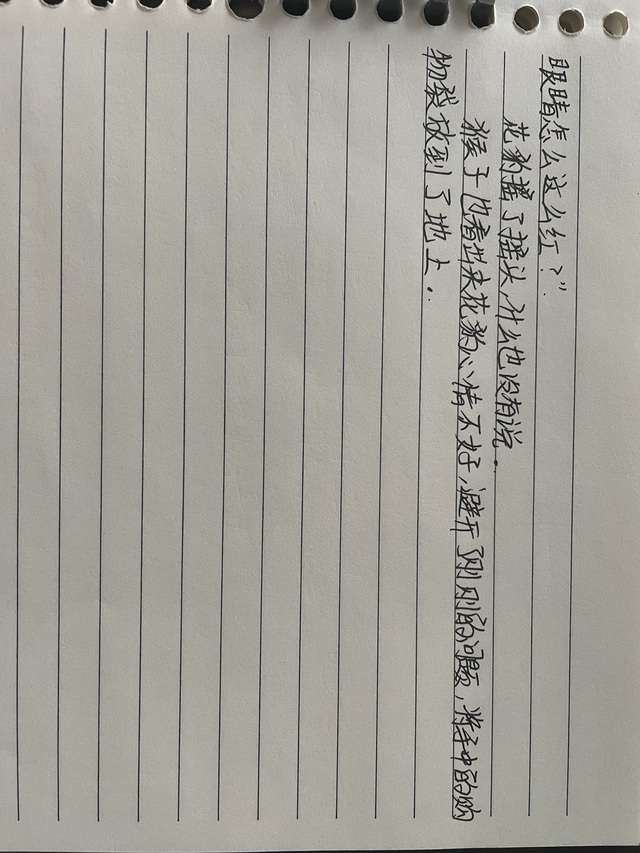 眼睛怎么这么红？”
花豹摇了摇头，什么也没有说。
猴子也看出来花豹心情不好，避开了刚刚的问题，将手中的购
物袋放到了地上。